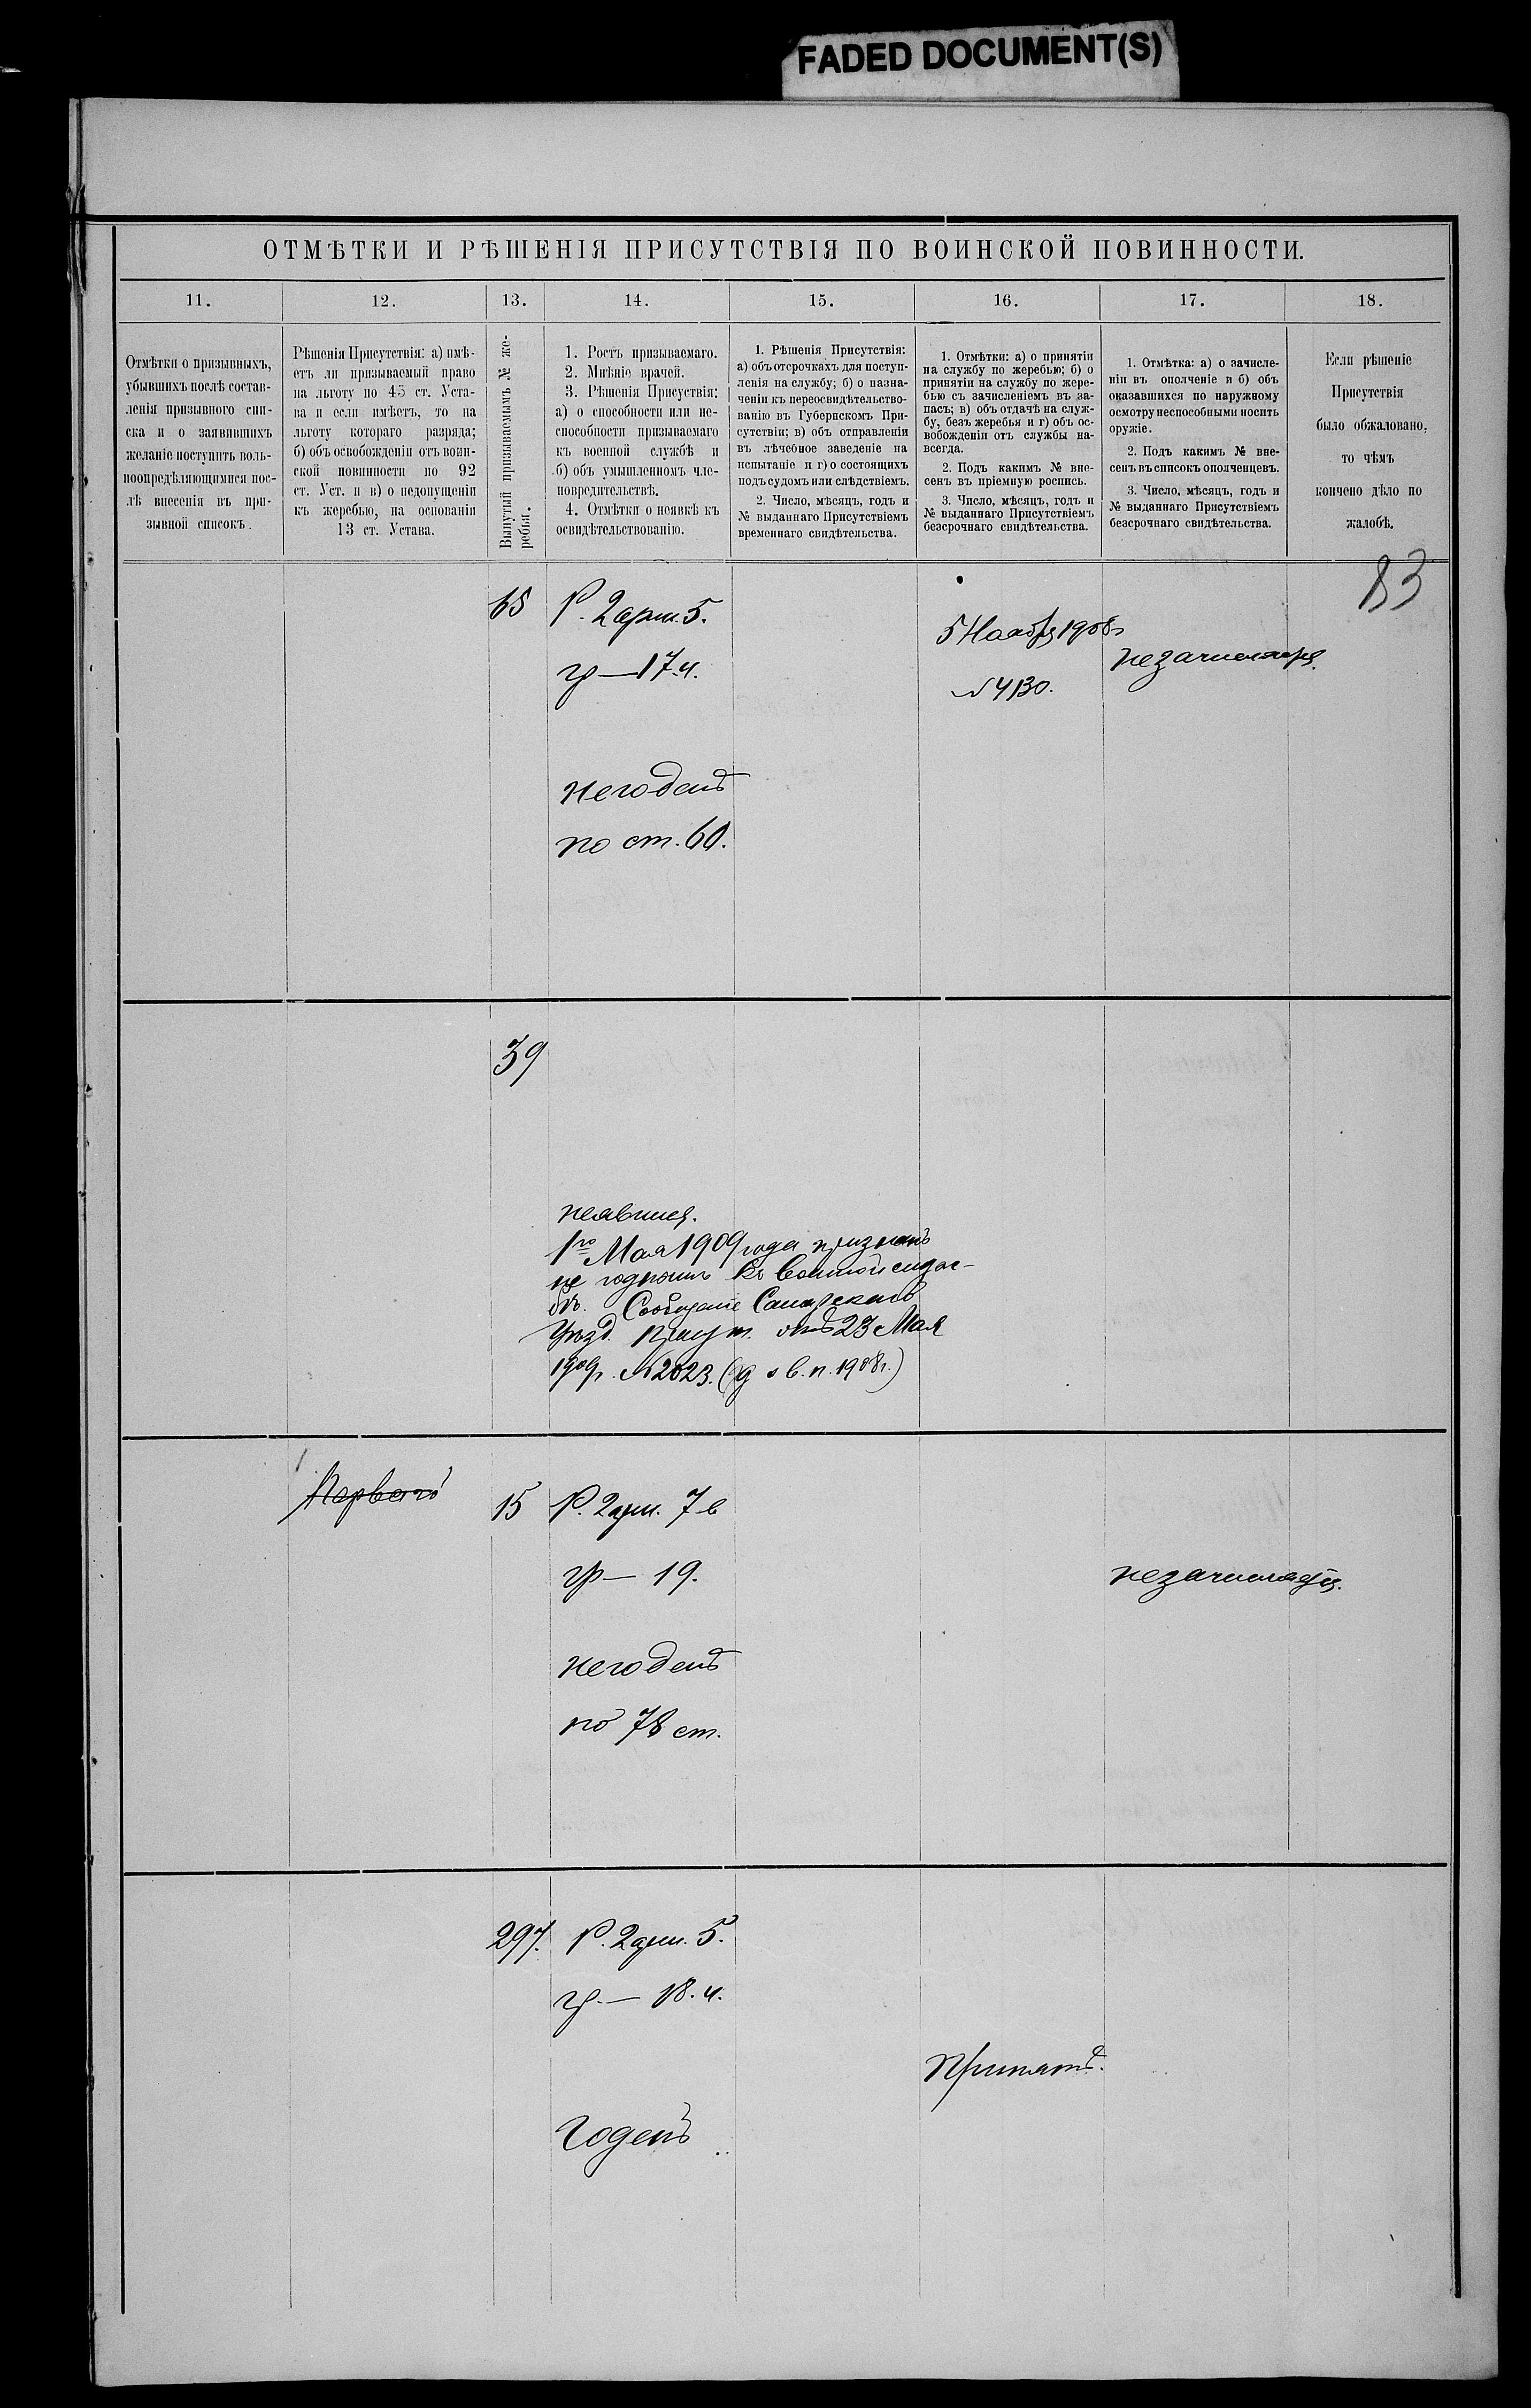 FADED DOCUMENT(S)
ОТМѢТКИ И РѢШЕНІЯ ПРИСУТСТВІЯ ПО ВОИНСКОЙ ПОВИННОСТИ.
11.
12.
13.
14.
15.
16.
17.
18.
Отмѣтки о призывныхъ,
убывшихъ послѣ состав-
ленія призывного спи-
ска и о заявившихъ
желаніе поступить воль-
ноопредѣляющимися пос-
лѣ внесенія въ при-
зывной списокъ.
Рѣшенія Присутствія: а) имѣ-
етъ ли призываемый право
на льготу по 45 ст. Уста-
ва и если имѣетъ, то на
льготу котораго разряда;
б) объ освобожденіи отъ воин-
ской повинности по 92
ст. Уст. и в) о недопущеніи
къ жеребью, на основаніи
13 ст. Устава.
Вынутый призываемымъ № же-
ребья.
1. Ростъ призываемаго.
2. Мнѣніе врачей.
3. Рѣшенія Присуствія:
а) о способности или не-
способности призываемаго
къ военной службѣ и
б) объ умышленномъ чле-
новредительствѣ.
4. Отмѣтки о неявкѣ къ
освидѣтельствованію.
1. Рѣшенія Присутствія:
а) объ отсрочкахъ для поступ-
ленія на службу; б) о назна-
ченіи къ переосвидѣтельство-
ванію въ Губернскомъ При-
сутствіи; в) объ отправленіи
въ лѣчебное заведеніе на
испытаніе и г) о состоящихъ
подъ судомъ или слѣдствіемъ.
2. Число, мѣсяцъ, годъ и
№ выданнаго Присутствіемъ
временнаго свидѣтельства.
1. Отмѣтки: а) о принятіи
на службу по жеребью; б) о
принятіи на службу по жере-
бью съ зачисленіемъ въ за-
пасъ; в) объ отдачѣ на служ-
бу, безъ жеребья и г) объ ос-
вобожденіи отъ службы на-
всегда.
2. Подъ какимъ № вне-
сенъ въ пріемную роспись.
3. Число, мѣсяцъ, годъ и
№ выданнаго Присутствіемъ
безсрочнаго свидѣтельства.
1. Отмѣтка: а) о зачисле-
ніи въ ополченіе и б) объ
оказавшихся по наружному
осмотру неспособными носить
оружіе.
2. Подъ какимъ № вне-
сенъ въ списокъ ополченцевъ.
3. Число, мѣсяцъ, годъ и
№ выданнаго Присутствіемъ
безсрочнаго свидѣтельства.
Если рѣшеніе
Присутствія
было обжаловано,
то чѣмъ
кончено дѣло по
жалобѣ.
83
65
Р. 2 арш. 5.
гр — 17.ч.
негоденъ
по ст. 60.
5 Ноября 1908г
№ 4130.
незачисляется.
39
неявился.
1го Мая 1909 года признанъ
не годнымъ къ военной служ-
бѣ. Сообщеніе Самарскаго
Уѣзд. Присут. отъ 23 Мая
1909г. № 2023. (д о в. п. 1908г.)
Перваго
15
Р. 2 арш. 7 в
гр — 19.
негоденъ
по 78 ст.
незачисляется.
297.
Р. 2 арш. 5.
гр. — 18. ч.
Годенъ
Принятъ.